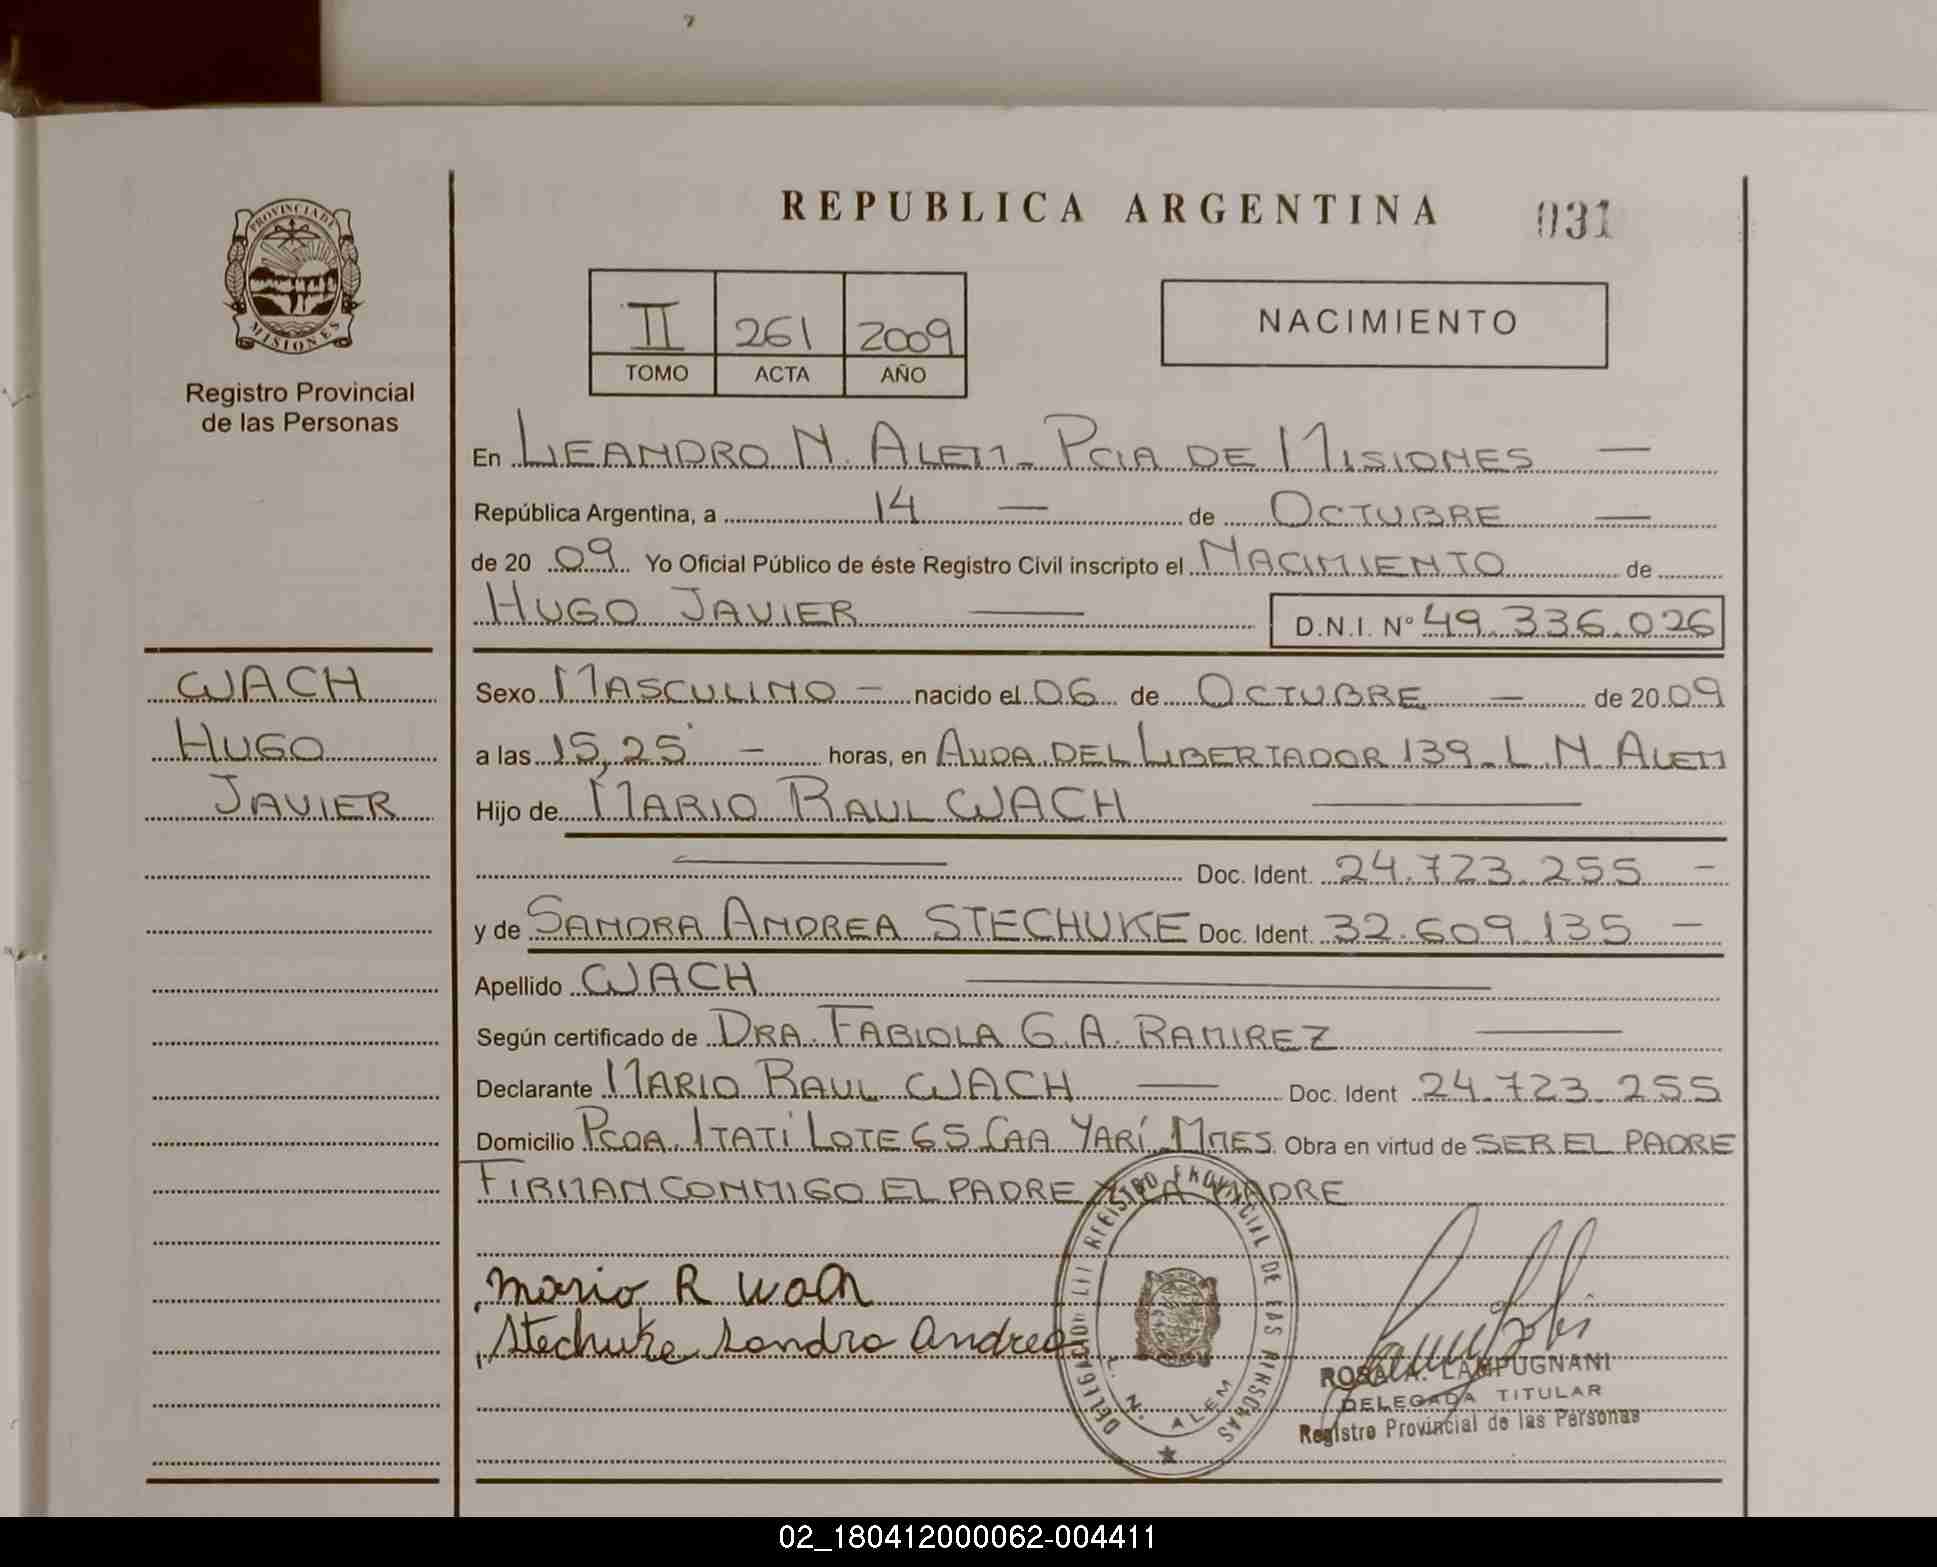 REPUBLICA ARGENTINA 031
PROVINCIA DE
MISIONES
Registro Provincial
de las Personas
II 261 2009
TOMO ACTA AÑO
NACIMIENTO
En LEANDRO N. ALEM - PCIA DE MISIONES —
República Argentina, a 14 — de OCTUBRE —
de 20 09 Yo Oficial Público de éste Registro Civil inscripto el NACIMIENTO de
HUGO JAVIER — D.N.I. N° 49.336.026
WACH
HUGO
JAVIER
Sexo MASCULINO - nacido el 06 de OCTUBRE — de 20 09
a las 15,25 — horas, en AVDA. DEL LIBERTADOR 139 - L.N. ALEM
Hijo de MARIO RAUL WACH —
— Doc. Ident. 24.723.255 -
y de SANDRA ANDREA STECHUKE Doc. Ident. 32.609.135 -
Apellido WACH —
Según certificado de DRA. FABIOLA G.A. RAMIREZ —
Declarante MARIO RAUL WACH — Doc. Ident 24.723.255
Domicilio PCDA. ITATÍ LOTE 65 CAA YARÍ MNES. Obra en virtud de SER EL PADRE
FIRMAN CONMIGO EL PADRE Y LA MADRE
Mario R Wach
Stechuke Sandra Andrea
REGISTRO PROVINCIAL DE LAS PERSONAS
L. N. ALEM
ROSA A. LAMPUGNANI
DELEGADA TITULAR
Registro Provincial de las Personas
02_180412000062-004411